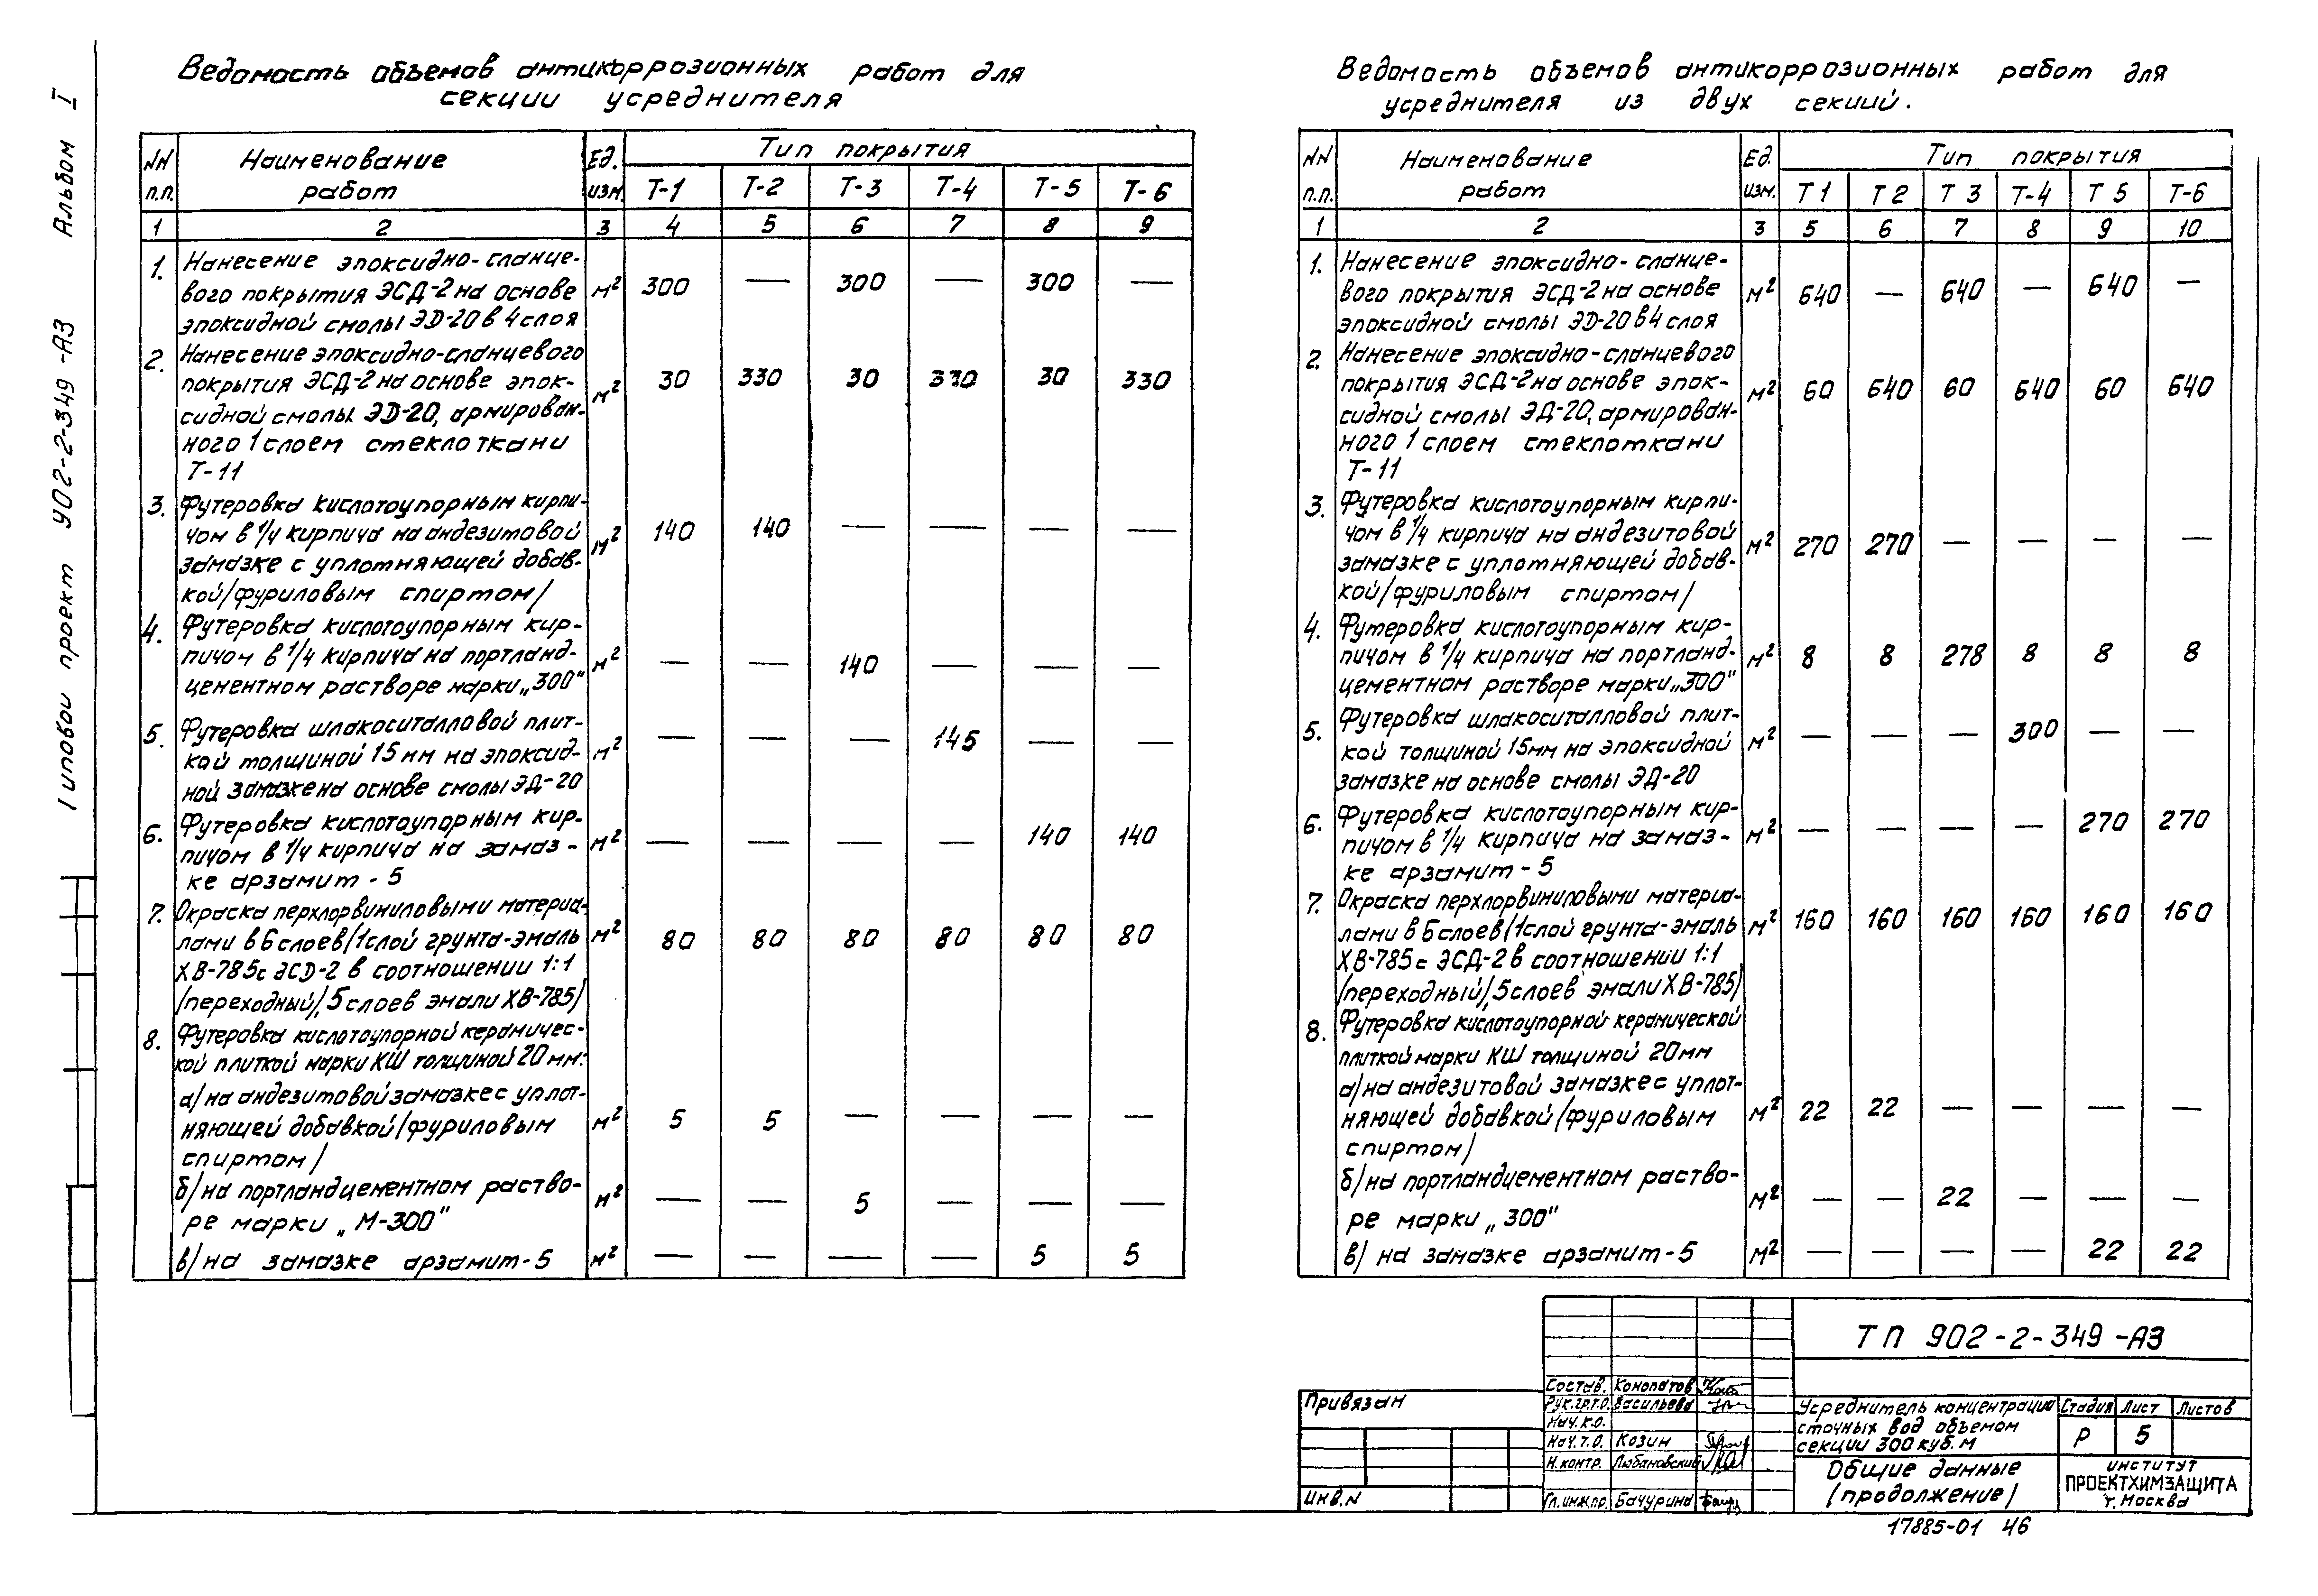 Типовой проект 902-2-349-АЗ Альбом I
Ведомость объемов антикоррозионных работ для
секции усреднителя
NN Наименование Ед. Тип покрытия
п.п. работ изм. Т-1 Т-2 Т-3 Т-4 Т-5 Т-6
1 2 3 4 5 6 7 8 9
1. Нанесение эпоксидно-сланце-
вого покрытия ЭСД-2 на основе м² 300 — 300 — 300 —
эпоксидной смолы ЭД-20 в 4 слоя
2. Нанесение эпоксидно-сланцевого
покрытия ЭСД-2 на основе эпок- м² 30 330 30 330 30 330
сидной смолы ЭД-20, армирован-
ного 1 слоем стеклоткани
Т-11
3. Футеровка кислотоупорным кирпи-
чом в 1/4 кирпича на андезитовой м² 140 140 — — — —
замазке с уплотняющей добав-
кой/фуриловым спиртом/
4. Футеровка кислотоупорным кир-
пичом в 1/4 кирпича на портланд- м² — — 140 — — —
цементном растворе марки „300"
5. Футеровка шлакоситалловой плит-
кой толщиной 15 мм на эпоксид- м² — — — 145 — —
ной замазке на основе смолы ЭД-20
6. Футеровка кислотоупорным кир-
пичом в 1/4 кирпича на замаз- м² — — — — 140 140
ке арзамит-5
7. Окраска перхлорвиниловыми материа-
лами в 6 слоев/1 слой грунта-эмаль м² 80 80 80 80 80 80
ХВ-785 с ЭСД-2 в соотношении 1:1
/переходный/, 5 слоев эмали ХВ-785/
8. Футеровка кислотоупорной керамичес-
кой плиткой марки КШ толщиной 20 мм:
а/ на андезитовой замазке с уплот-
няющей добавкой/фуриловым м² 5 5 — — — —
спиртом/
б/ на портландцементном раство- м² — — 5 — — —
ре марки „М-300"
в/ на замазке арзамит-5 м² — — — — 5 5
Ведомость объемов антикоррозионных работ для
усреднителя из двух секций.
NN Наименование Ед. Тип покрытия
п.п. работ изм. Т 1 Т 2 Т 3 Т-4 Т 5 Т-6
1 2 3 5 6 7 8 9 10
1. Нанесение эпоксидно-сланце-
вого покрытия ЭСД-2 на основе м² 640 — 640 — 640 —
эпоксидной смолы ЭД-20 в 4 слоя
2. Нанесение эпоксидно-сланцевого
покрытия ЭСД-2 на основе эпок- м² 60 640 60 640 60 640
сидной смолы ЭД-20, армирован-
ного 1 слоем стеклоткани
Т-11
3. Футеровка кислотоупорным кирпи-
чом в 1/4 кирпича на андезитовой м² 270 270 — — — —
замазке с уплотняющей добав-
кой/фуриловым спиртом/
4. Футеровка кислотоупорным кир-
пичом в 1/4 кирпича на портланд- м² 8 8 278 8 8 8
цементном растворе марки „300"
5. Футеровка шлакоситалловой плит-
кой толщиной 15мм на эпоксидной м² — — — 300 — —
замазке на основе смолы ЭД-20
6. Футеровка кислотоупорным кир-
пичом в 1/4 кирпича на замаз- м² — — — — 270 270
ке арзамит-5
7. Окраска перхлорвиниловыми материа-
лами в 6 слоев/1 слой грунта-эмаль м² 160 160 160 160 160 160
ХВ-785 с ЭСД-2 в соотношении 1:1
/переходный/, 5 слоев эмали ХВ-785/
8. Футеровка кислотоупорной керамической
плиткой марки КШ толщиной 20мм
а/ на андезитовой замазке с уплот-
няющей добавкой/фуриловым м² 22 22 — — — —
спиртом/
б/ на портландцементном раство- м² — — 22 — — —
ре марки „300"
в/ на замазке арзамит-5 м² — — — — 22 22
ТП 902-2-349-АЗ
Привязан
Инв.N
Состав. Конопатов
Рук.гр.т.о. Васильева
Нач.к.о.
Нач.т.о. Козин
Н.контр. Любановский
Гл.инж.пр. Бачурина
Усреднитель концентрации
сточных вод объемом
секции 300 куб.м
Стадия Лист Листов
Р 5
Общие данные
/продолжение/
ИНСТИТУТ
ПРОЕКТХИМЗАЩИТА
г. Москва
17885-01 46